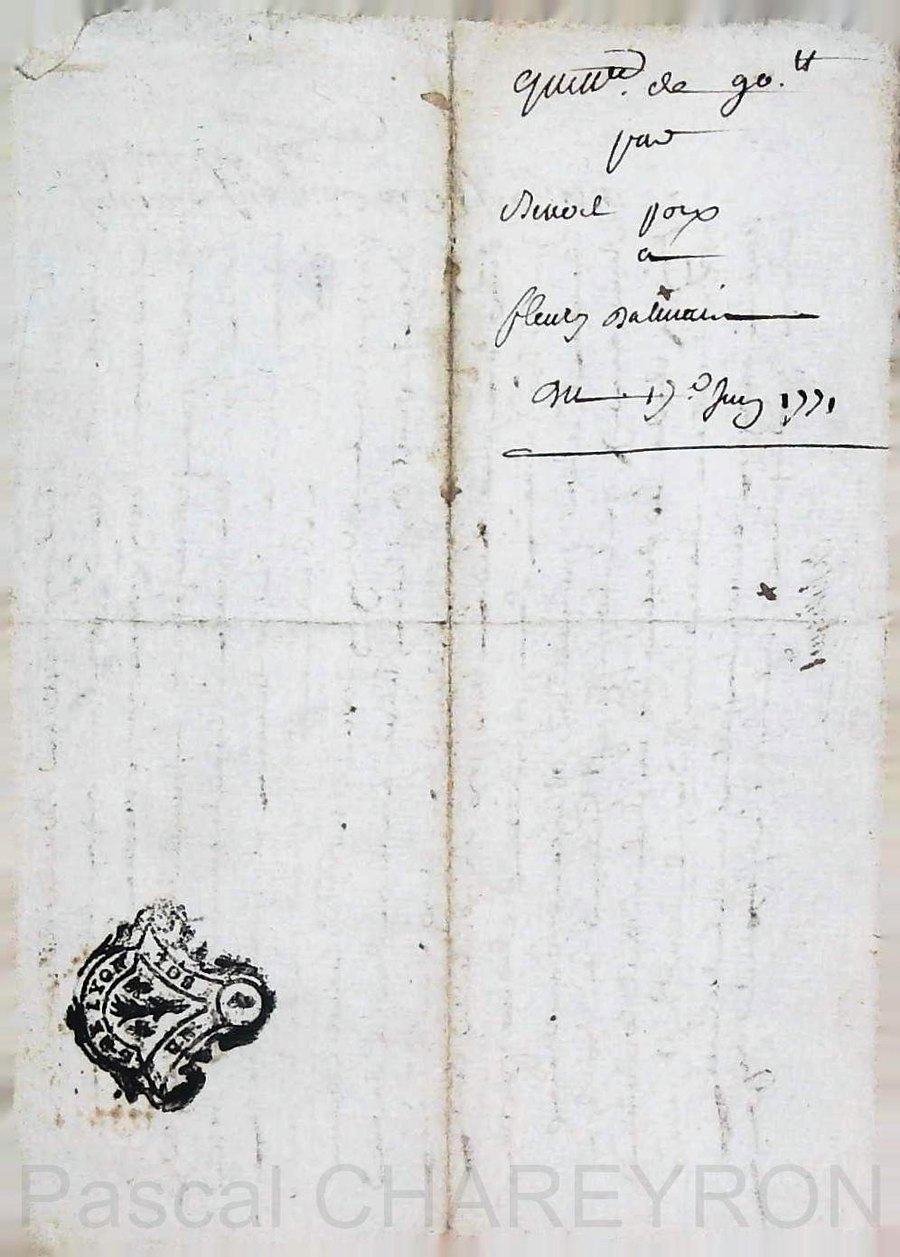 quitt.ce de 90.tt
par
Benoit poix
a
fleury Dalmais
Du 17.e Juin 1771
GEN LYON
DS
Pascal CHAREYRON